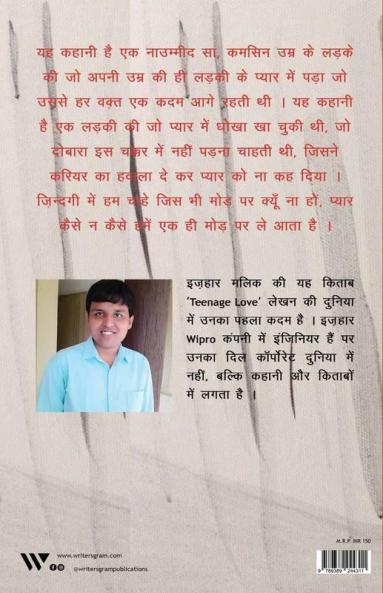 यह कहानी है एक नाउम्मीद सा, कमसिन उम्र के लड़के
की जो अपनी उम्र की ही लड़की के प्यार में पड़ा जो
उससे हर वक़्त एक कदम आगे रहती थी । यह कहानी
है एक लड़की की जो प्यार में धोखा खा चुकी थी, जो
दोबारा इस चक्कर में नहीं पड़ना चाहती थी, जिसने
करियर का हवाला दे कर प्यार को ना कह दिया ।
ज़िन्दगी में हम चाहे जिस भी मोड़ पर क्यूँ ना हों, प्यार
कैसे न कैसे हमें एक ही मोड़ पर ले आता है ।
इज़हार मलिक की यह किताब
‘Teenage Love’ लेखन की दुनिया
में उनका पहला कदम है । इज़हार
Wipro कंपनी में इंजिनियर हैं पर
उनका दिल कॉर्पोरेट दुनिया में
नहीं, बल्कि कहानी और किताबों
में लगता है ।
M.R.P. INR 150
www.writersgram.com
@writersgrampublications
9 789389 244311